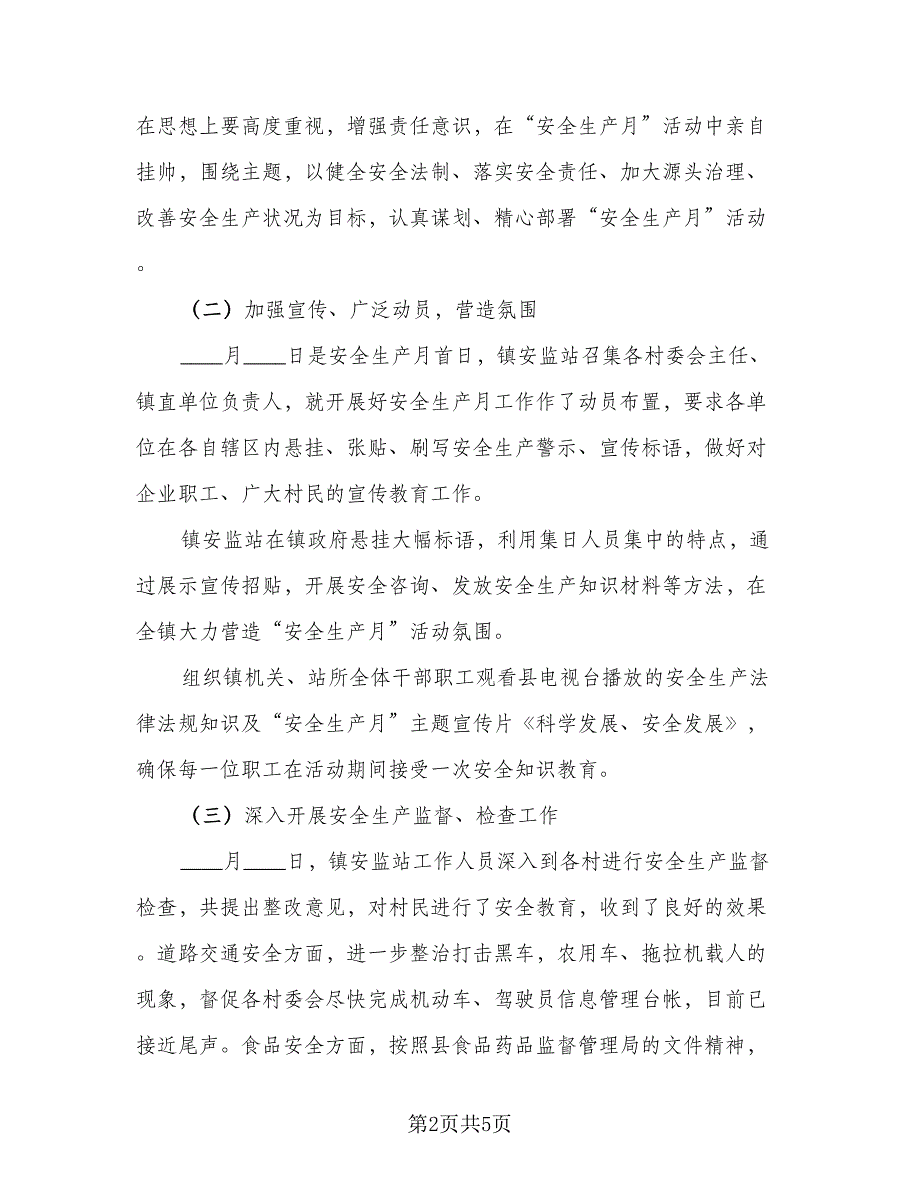 在思想上要高度重视，增强责任意识，在“安全生产月”活动中亲自
挂帅，围绕主题，以健全安全法制、落实安全责任、加大源头治理、
改善安全生产状况为目标，认真谋划、精心部署“安全生产月”活动
。
（二）加强宣传、广泛动员，营造氛围
____月____日是安全生产月首日，镇安监站召集各村委会主任、
镇直单位负责人，就开展好安全生产月工作作了动员布置，要求各单
位在各自辖区内悬挂、张贴、刷写安全生产警示、宣传标语，做好对
企业职工、广大村民的宣传教育工作。
镇安监站在镇政府悬挂大幅标语，利用集日人员集中的特点，通
过展示宣传招贴，开展安全咨询、发放安全生产知识材料等方法，在
全镇大力营造“安全生产月”活动氛围。
组织镇机关、站所全体干部职工观看县电视台播放的安全生产法
律法规知识及“安全生产月”主题宣传片《科学发展、安全发展》，
确保每一位职工在活动期间接受一次安全知识教育。
（三）深入开展安全生产监督、检查工作
____月____日，镇安监站工作人员深入到各村进行安全生产监督
检查，共提出整改意见，对村民进行了安全教育，收到了良好的效果
。道路交通安全方面，进一步整治打击黑车，农用车、拖拉机载人的
现象，督促各村委会尽快完成机动车、驾驶员信息管理台帐，目前已
接近尾声。食品安全方面，按照县食品药品监督管理局的文件精神，
第2页共5页